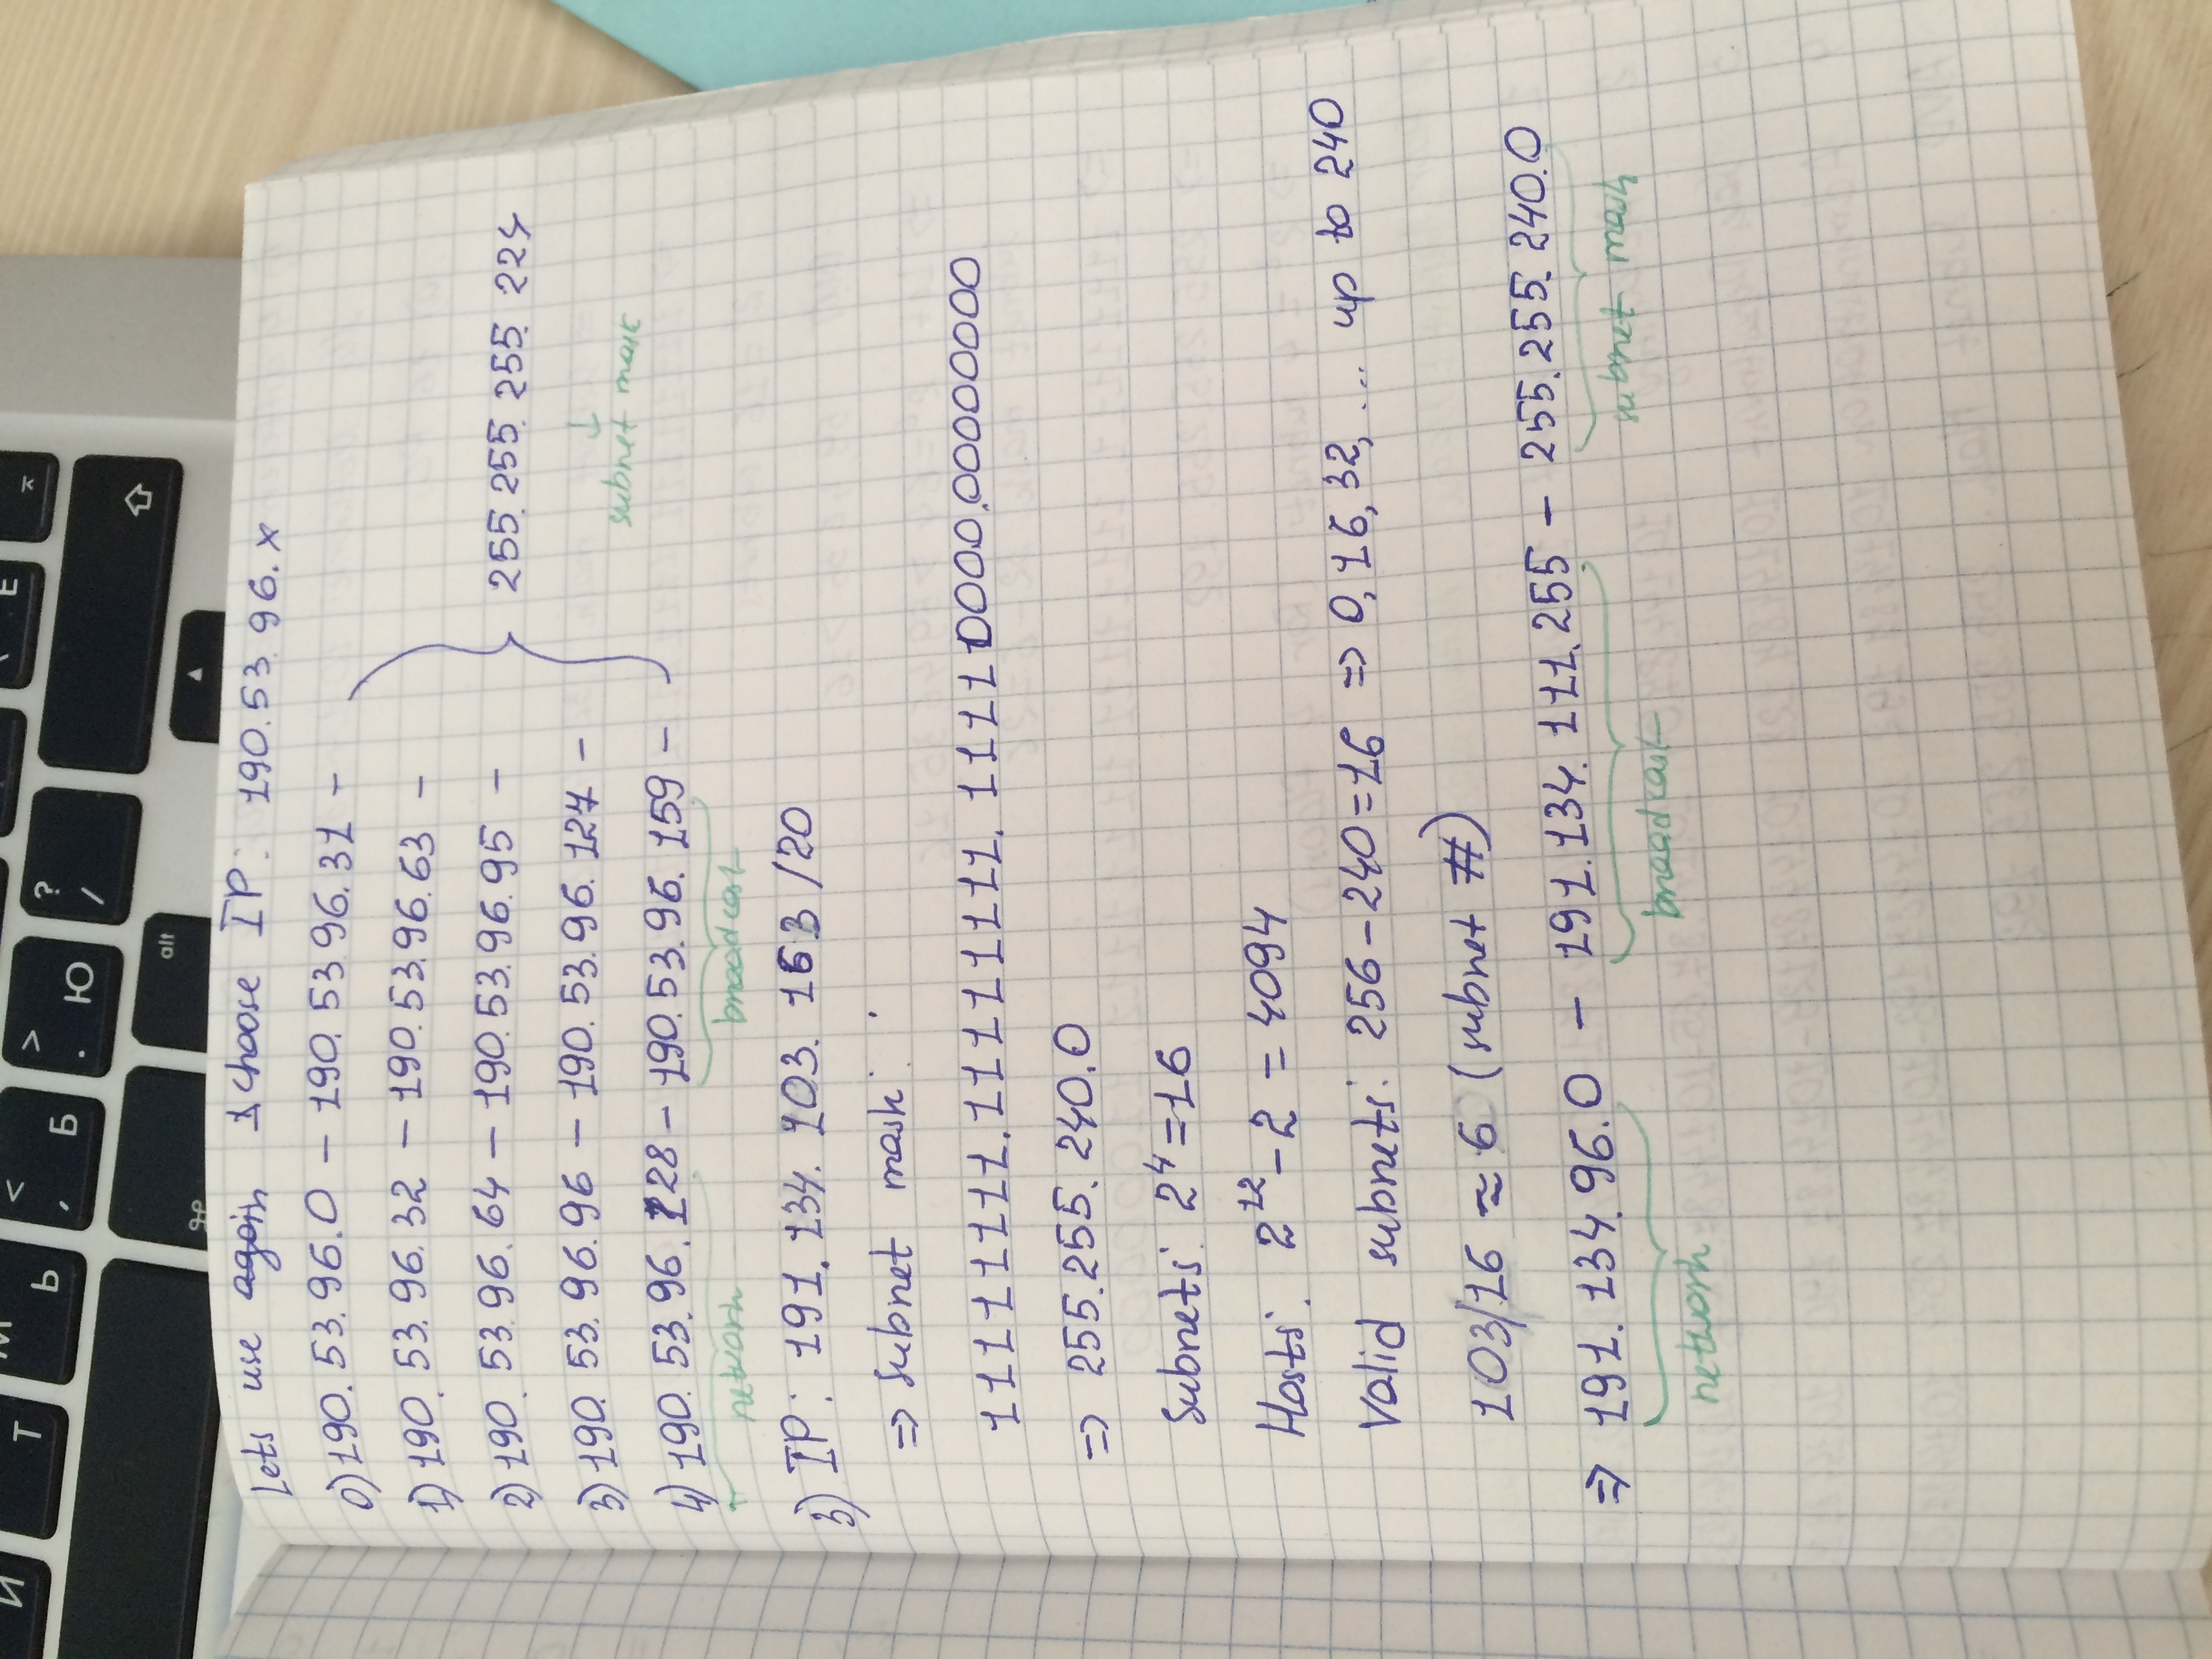 И Т М Ь < , Б > . Ю ? / Е
⌘ alt
Lets use again I choose IP: 190.53.96.x
0) 190.53.96.0 – 190.53.96.31 –
1) 190.53.96.32 – 190.53.96.63 –
2) 190.53.96.64 – 190.53.96.95 –
255.255.255.224
3) 190.53.96.96 – 190.53.96.127 –
subnet mask
4) 190.53.96.128 – 190.53.96.159 –
network broadcast
3) IP: 191.134.103.163 /20
=> Subnet mask:
11111111.11111111.11110000.00000000
=> 255.255.240.0
Subnets: 2^4 = 16
Hosts: 2^12 – 2 = 4094
Valid subnets: 256 – 240 = 16 => 0, 16, 32, ... up to 240
103/16 ≈ 6 (subnet #)
=> 191.134.96.0 – 191.134.111.255 – 255.255.240.0
network broadcast subnet mask